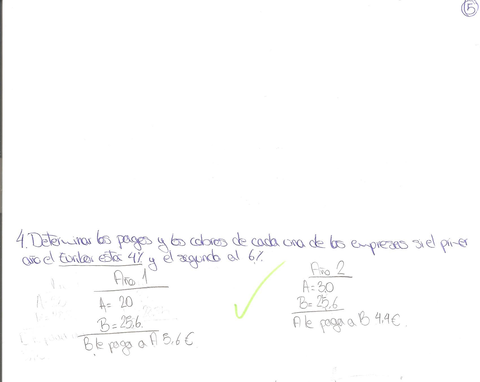 5
4. Determinar los pagos y los cobros de cada una de las empresas si el primer
año el Euribor esta al 4% y el segundo al 6%.
Año 1
A= 20
B= 25,6.
B le paga a A 5,6 €
Año 2
A= 30
B= 25,6
A le paga a B 4.4€.